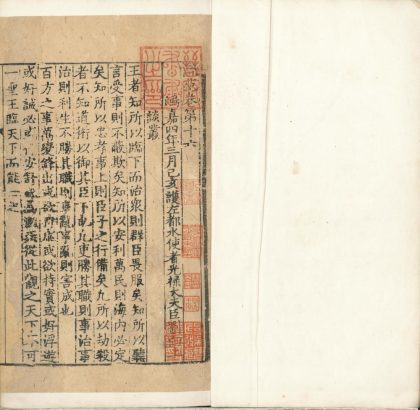 說苑卷第十六
鴻嘉四年三月己亥護左都水使者光祿大夫臣
談叢
王者知所以臨下而治衆則群臣畏服矣知所以聽
言受事則不蔽欺矣知所以安利萬民則海内必定
矣知所以忠孝事上則臣子之行備矣凡所以劫殺
者不知道術以御其臣下也凡吏勝其職則事治事
治則利生不勝其職則事亂事亂則害成也
百方之事萬變鋒出或欲持虚或欲持實或好浮遊
或好誠必或行安舒或爲飄疾從此觀之天下不可
一聖王臨天下而能一之